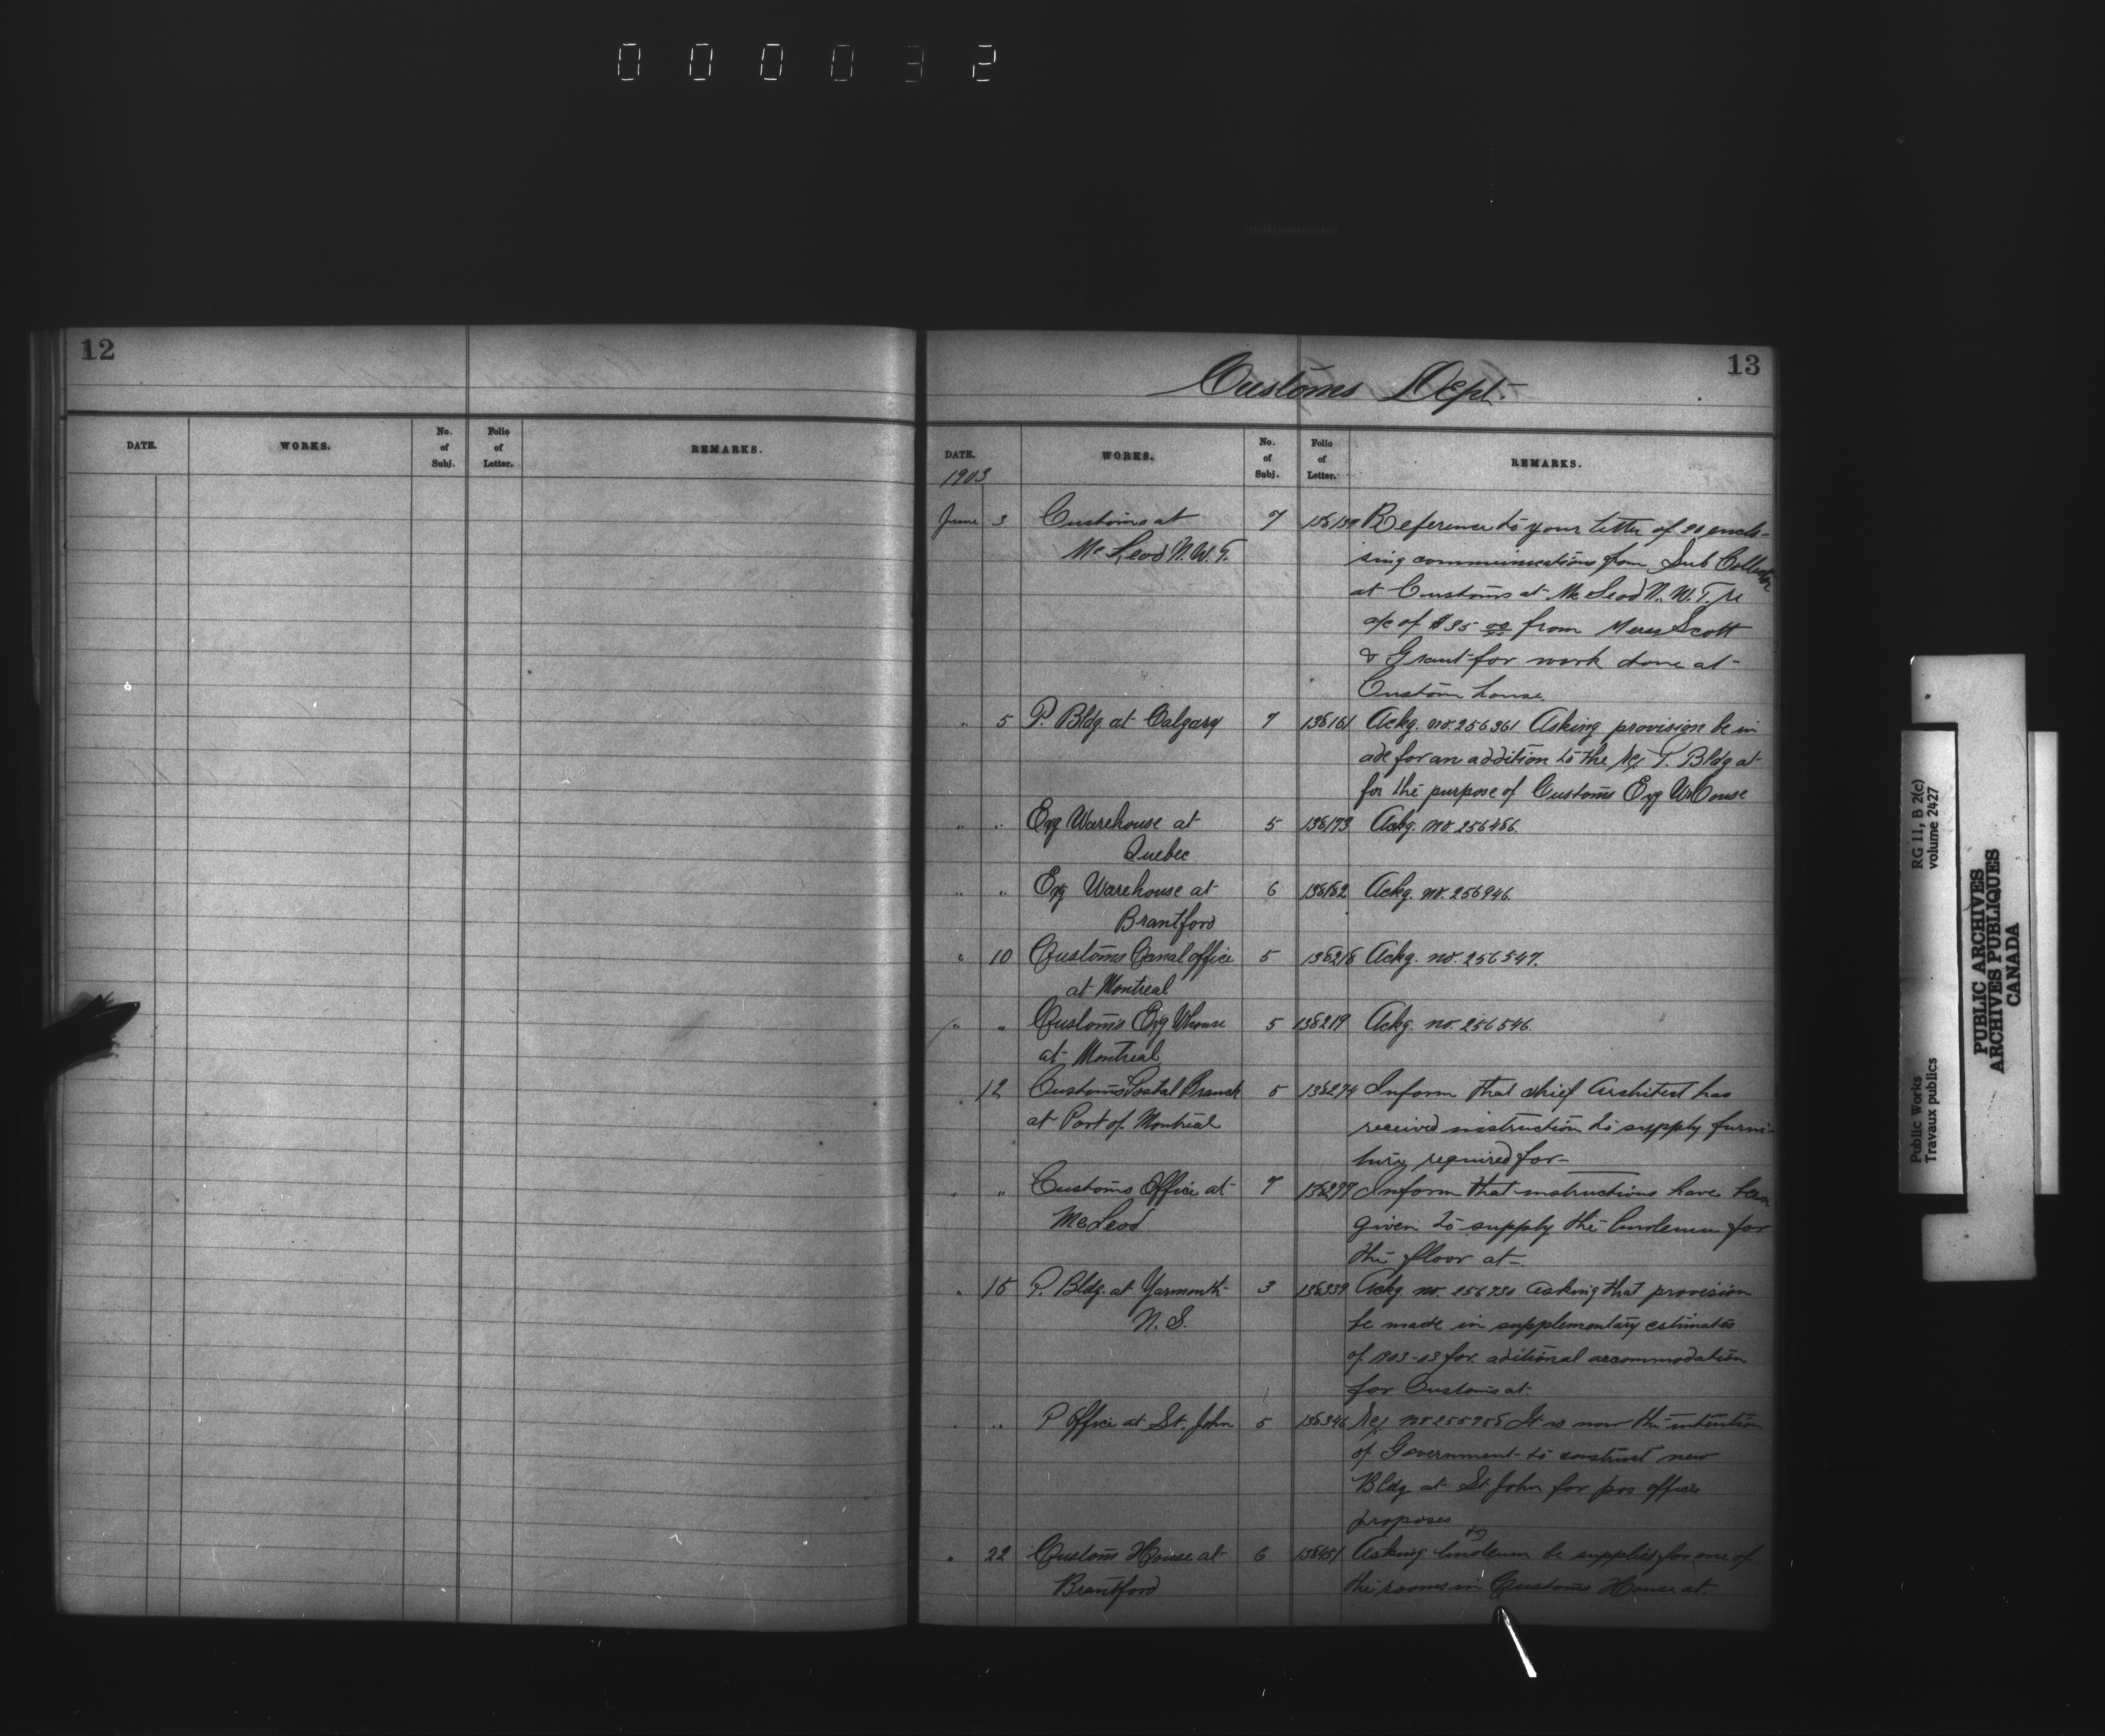 000032
12
DATE. WORKS. No. of Subj. Folio of Letter. REMARKS.
13
Customs Dept.
DATE. WORKS. No. of Subj. Folio of Letter. REMARKS.
1903
June 3 Customs at 7 Reference to your letter of 20 enclo-
McLeod N.W.T. sing communications from Sub Collector
at Customs at McLeod N.W.T. re
a/c of $35 00 from Scott
& Grant for work done at
Custom house
" 5 P. Bldg. at Calgary 7 138161 Ackg. no. 256361 Asking provision be m
ade for an addition to the P. Bldg at
for the purpose of Customs Exg
" " Exg Warehouse at 5 138173 Ackg. no. 256486.
Quebec
" " Exg Warehouse at 6 138182 Ackg. no. 256946.
Brantford
" 10 Customs Canal office 5 138218 Ackg. no. 256547.
at Montreal
" " Customs Exg Whouse 5 138219 Ackg. no. 256546.
at Montreal
12 Customs Postal Branch 5 138274 Inform that chief Architect has
at Port of Montreal received instruction to supply furni-
ture required for
" " Customs Office at 7 138277 Inform that instructions have been
McLeod given to supply the linoleum for
the floor at
" 15 P. Bldg. at Yarmouth 3 138339 Ackg. no. 256730 asking that provision
N.S. be made in supplementary estimates
of 1903-03 for aditional accommodation
for Customs at
" " P Office at St. John 5 138346 no 255958 It is now the intention
of Government to construct new
Bldg at St John for pos office
proposes
" 22 Customs House at 6 138451 Asking linoleum be supplied for one of
Brantford the rooms in Customs House at.
Public Works RG 11, B 2(c)
Travaux publics volume 2427
PUBLIC ARCHIVES
ARCHIVES PUBLIQUES
CANADA